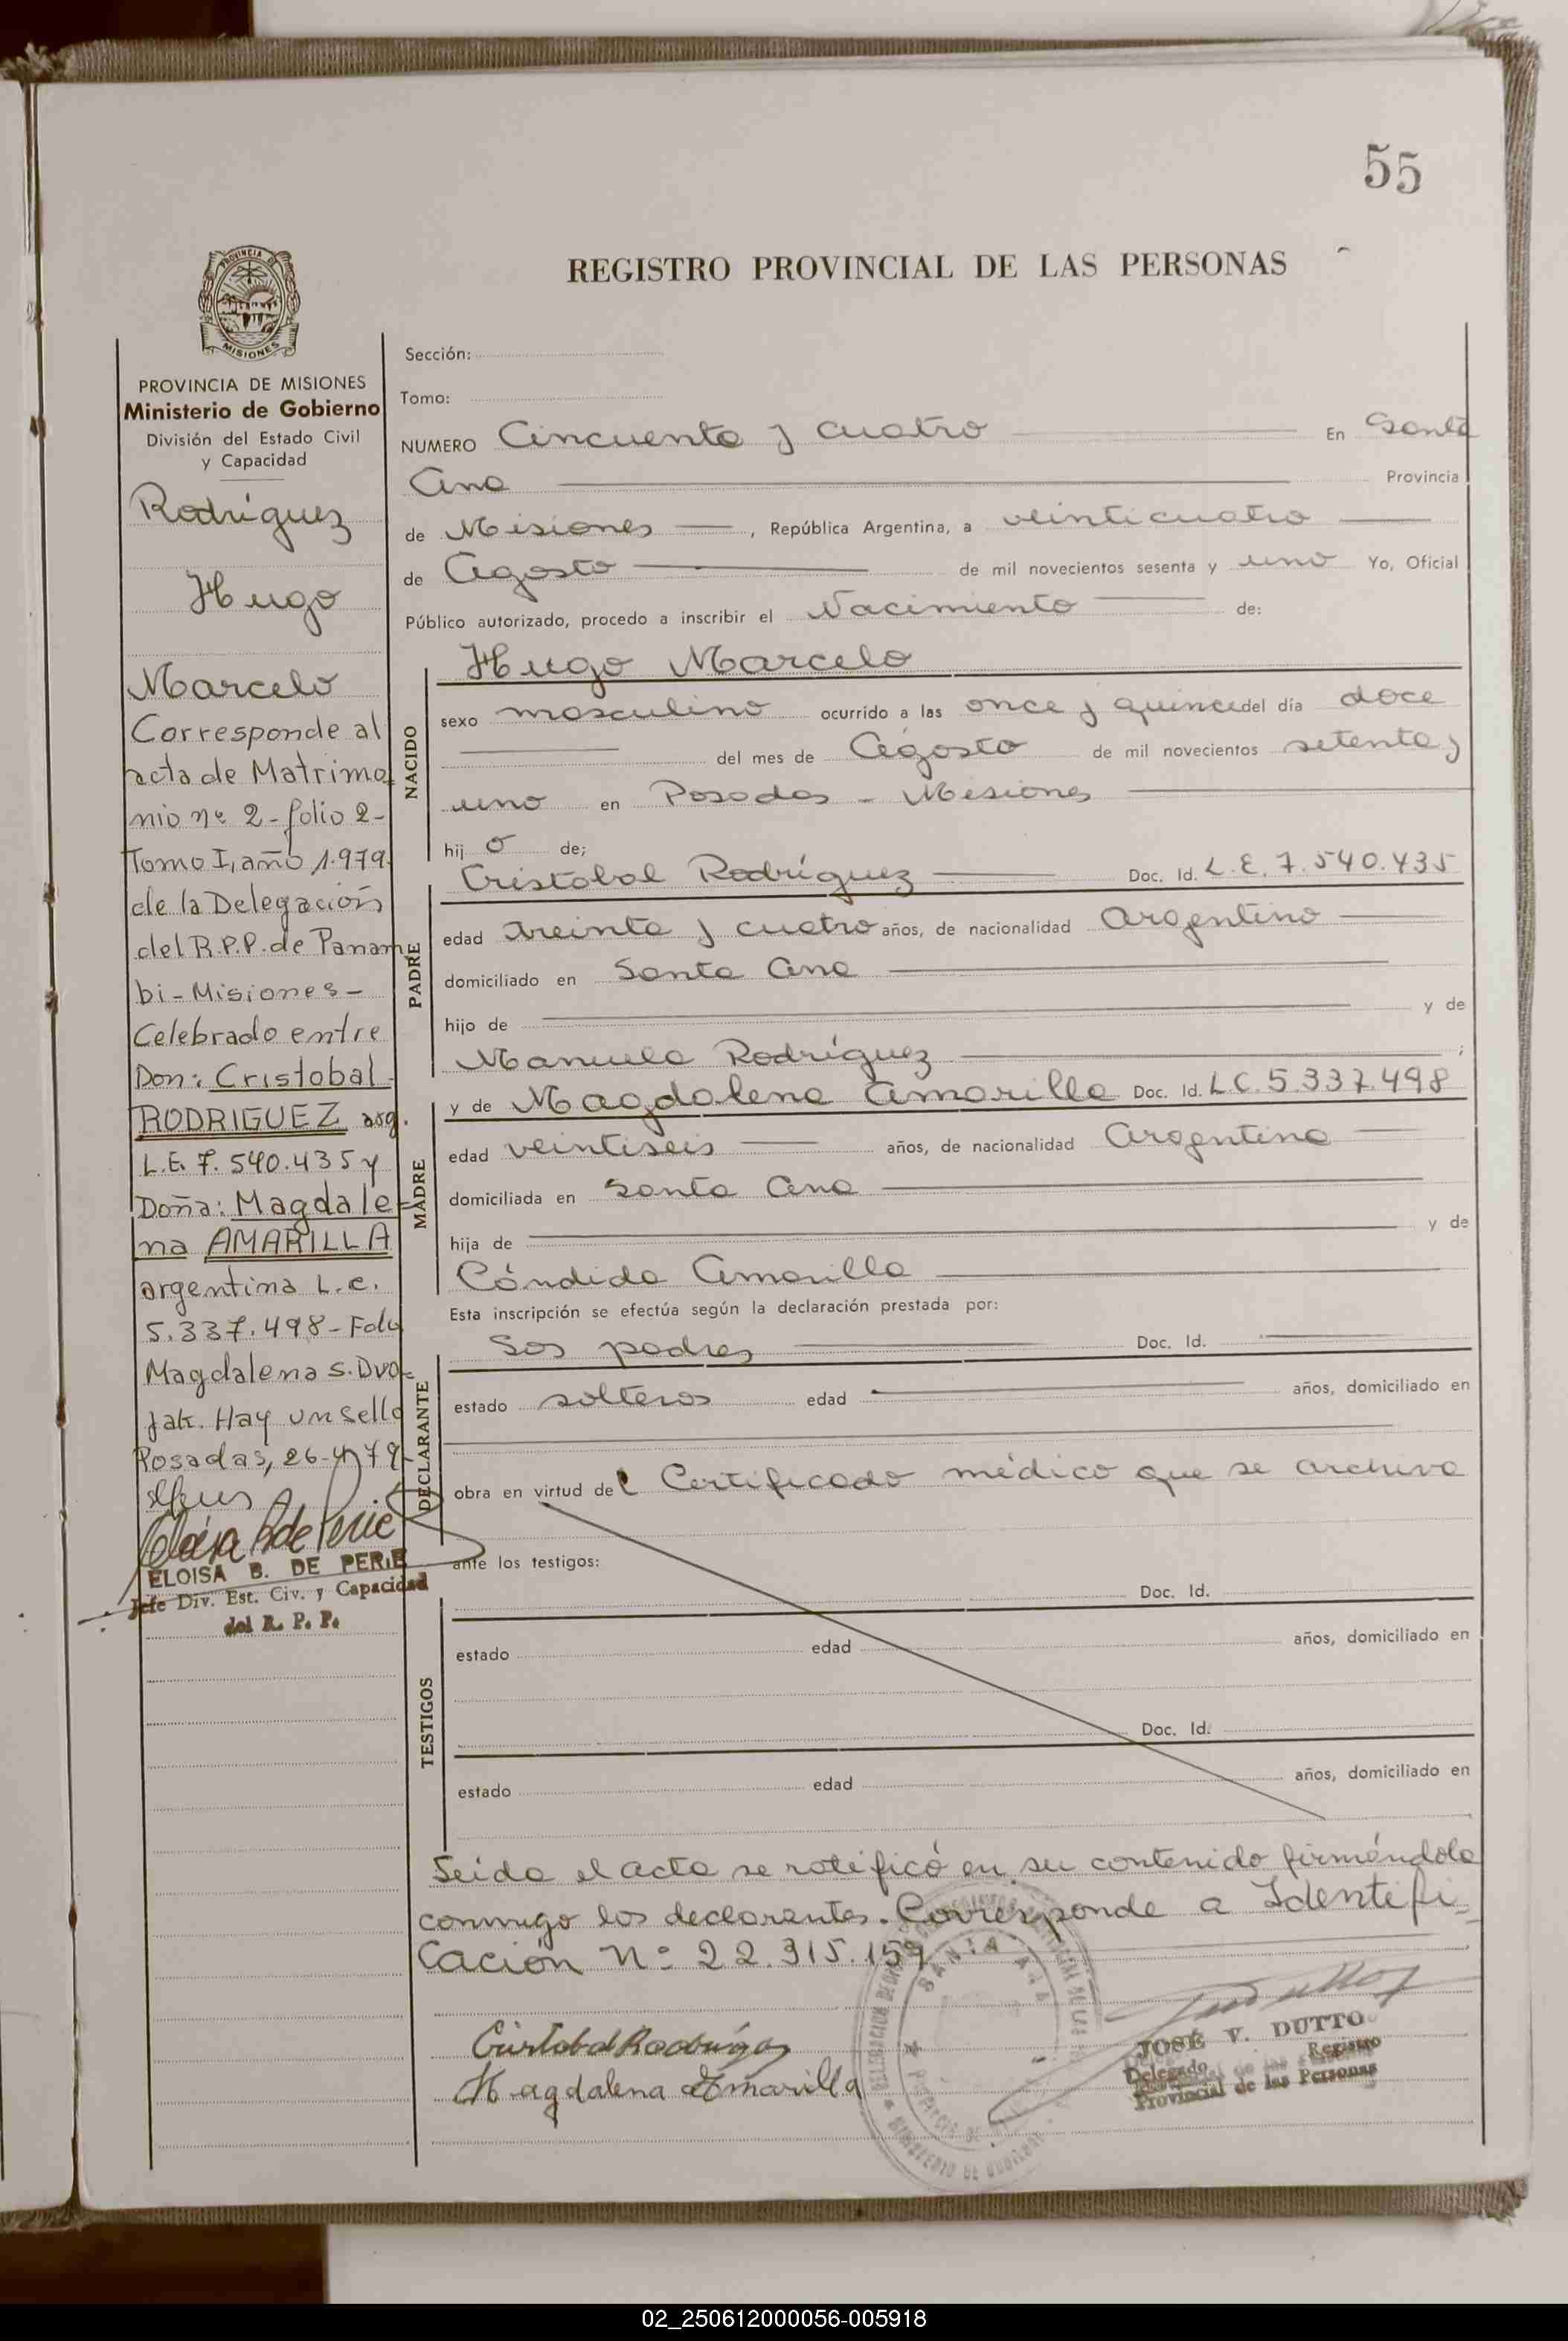 55
REGISTRO PROVINCIAL DE LAS PERSONAS
PROVINCIA DE
MISIONES
PROVINCIA DE MISIONES
Ministerio de Gobierno
División del Estado Civil
y Capacidad
Rodríguez
Hugo
Marcelo
Corresponde al
acta de Matrimo
nio nº 2 - folio 2 -
Tomo I, año 1.979.
de la Delegación
del R.P.P. de Panam
bi - Misiones -
Celebrado entre
Don: Cristobal
RODRIGUEZ arg.
L.E. 7.540.435 y
Doña: Magdale=
na AMARILLA
argentina L.C.
5.337.498 - Fdo
Magdalena S. Dvo-
jak. Hay un sello
Posadas, 26-4-79-
ELOISA B. DE PERIE
Jefe Div. Est. Civ. y Capacidad
del R. P. P.
Sección:
Tomo:
NUMERO Cincuenta y cuatro En Santa
Ana Provincia
de Misiones, República Argentina, a veinticuatro
de Agosto de mil novecientos sesenta y uno Yo, Oficial
Público autorizado, procedo a inscribir el Nacimiento de:
NACIDO
Hugo Marcelo
sexo masculino ocurrido a las once y quince del día doce
del mes de Agosto de mil novecientos setenta y
uno en Posadas - Misiones
hij o de;
PADRE
Cristobal Rodríguez Doc. Id. L.E. 7.540.435
edad treinta y cuatro años, de nacionalidad Argentino
domiciliado en Santa Ana
hijo de y de
Manuela Rodríguez ;
MADRE
y de Magdalena Amarilla Doc. Id. L.C. 5.337.498
edad veintiseis años, de nacionalidad Argentina
domiciliada en Santa Ana
hija de y de
Cándida Amarilla
Esta inscripción se efectúa según la declaración prestada por:
DECLARANTE
Sos padres Doc. Id.
estado solteros edad años, domiciliado en
obra en virtud del Certificado médico que se archiva
ante los testigos:
TESTIGOS
Doc. Id.
estado edad años, domiciliado en
Doc. Id.
estado edad años, domiciliado en
Leida el acta se ratificó en su contenido firmándola
conmigo los declarantes. Corresponde a Identifi-
cación Nº 22.315.159
SANTA ANA
Cristobal Rodríguez
Magdalena Amarilla
JOSÉ V. DUTTO
Delegado Registro
Provincial de las Personas
02_250612000056-005918